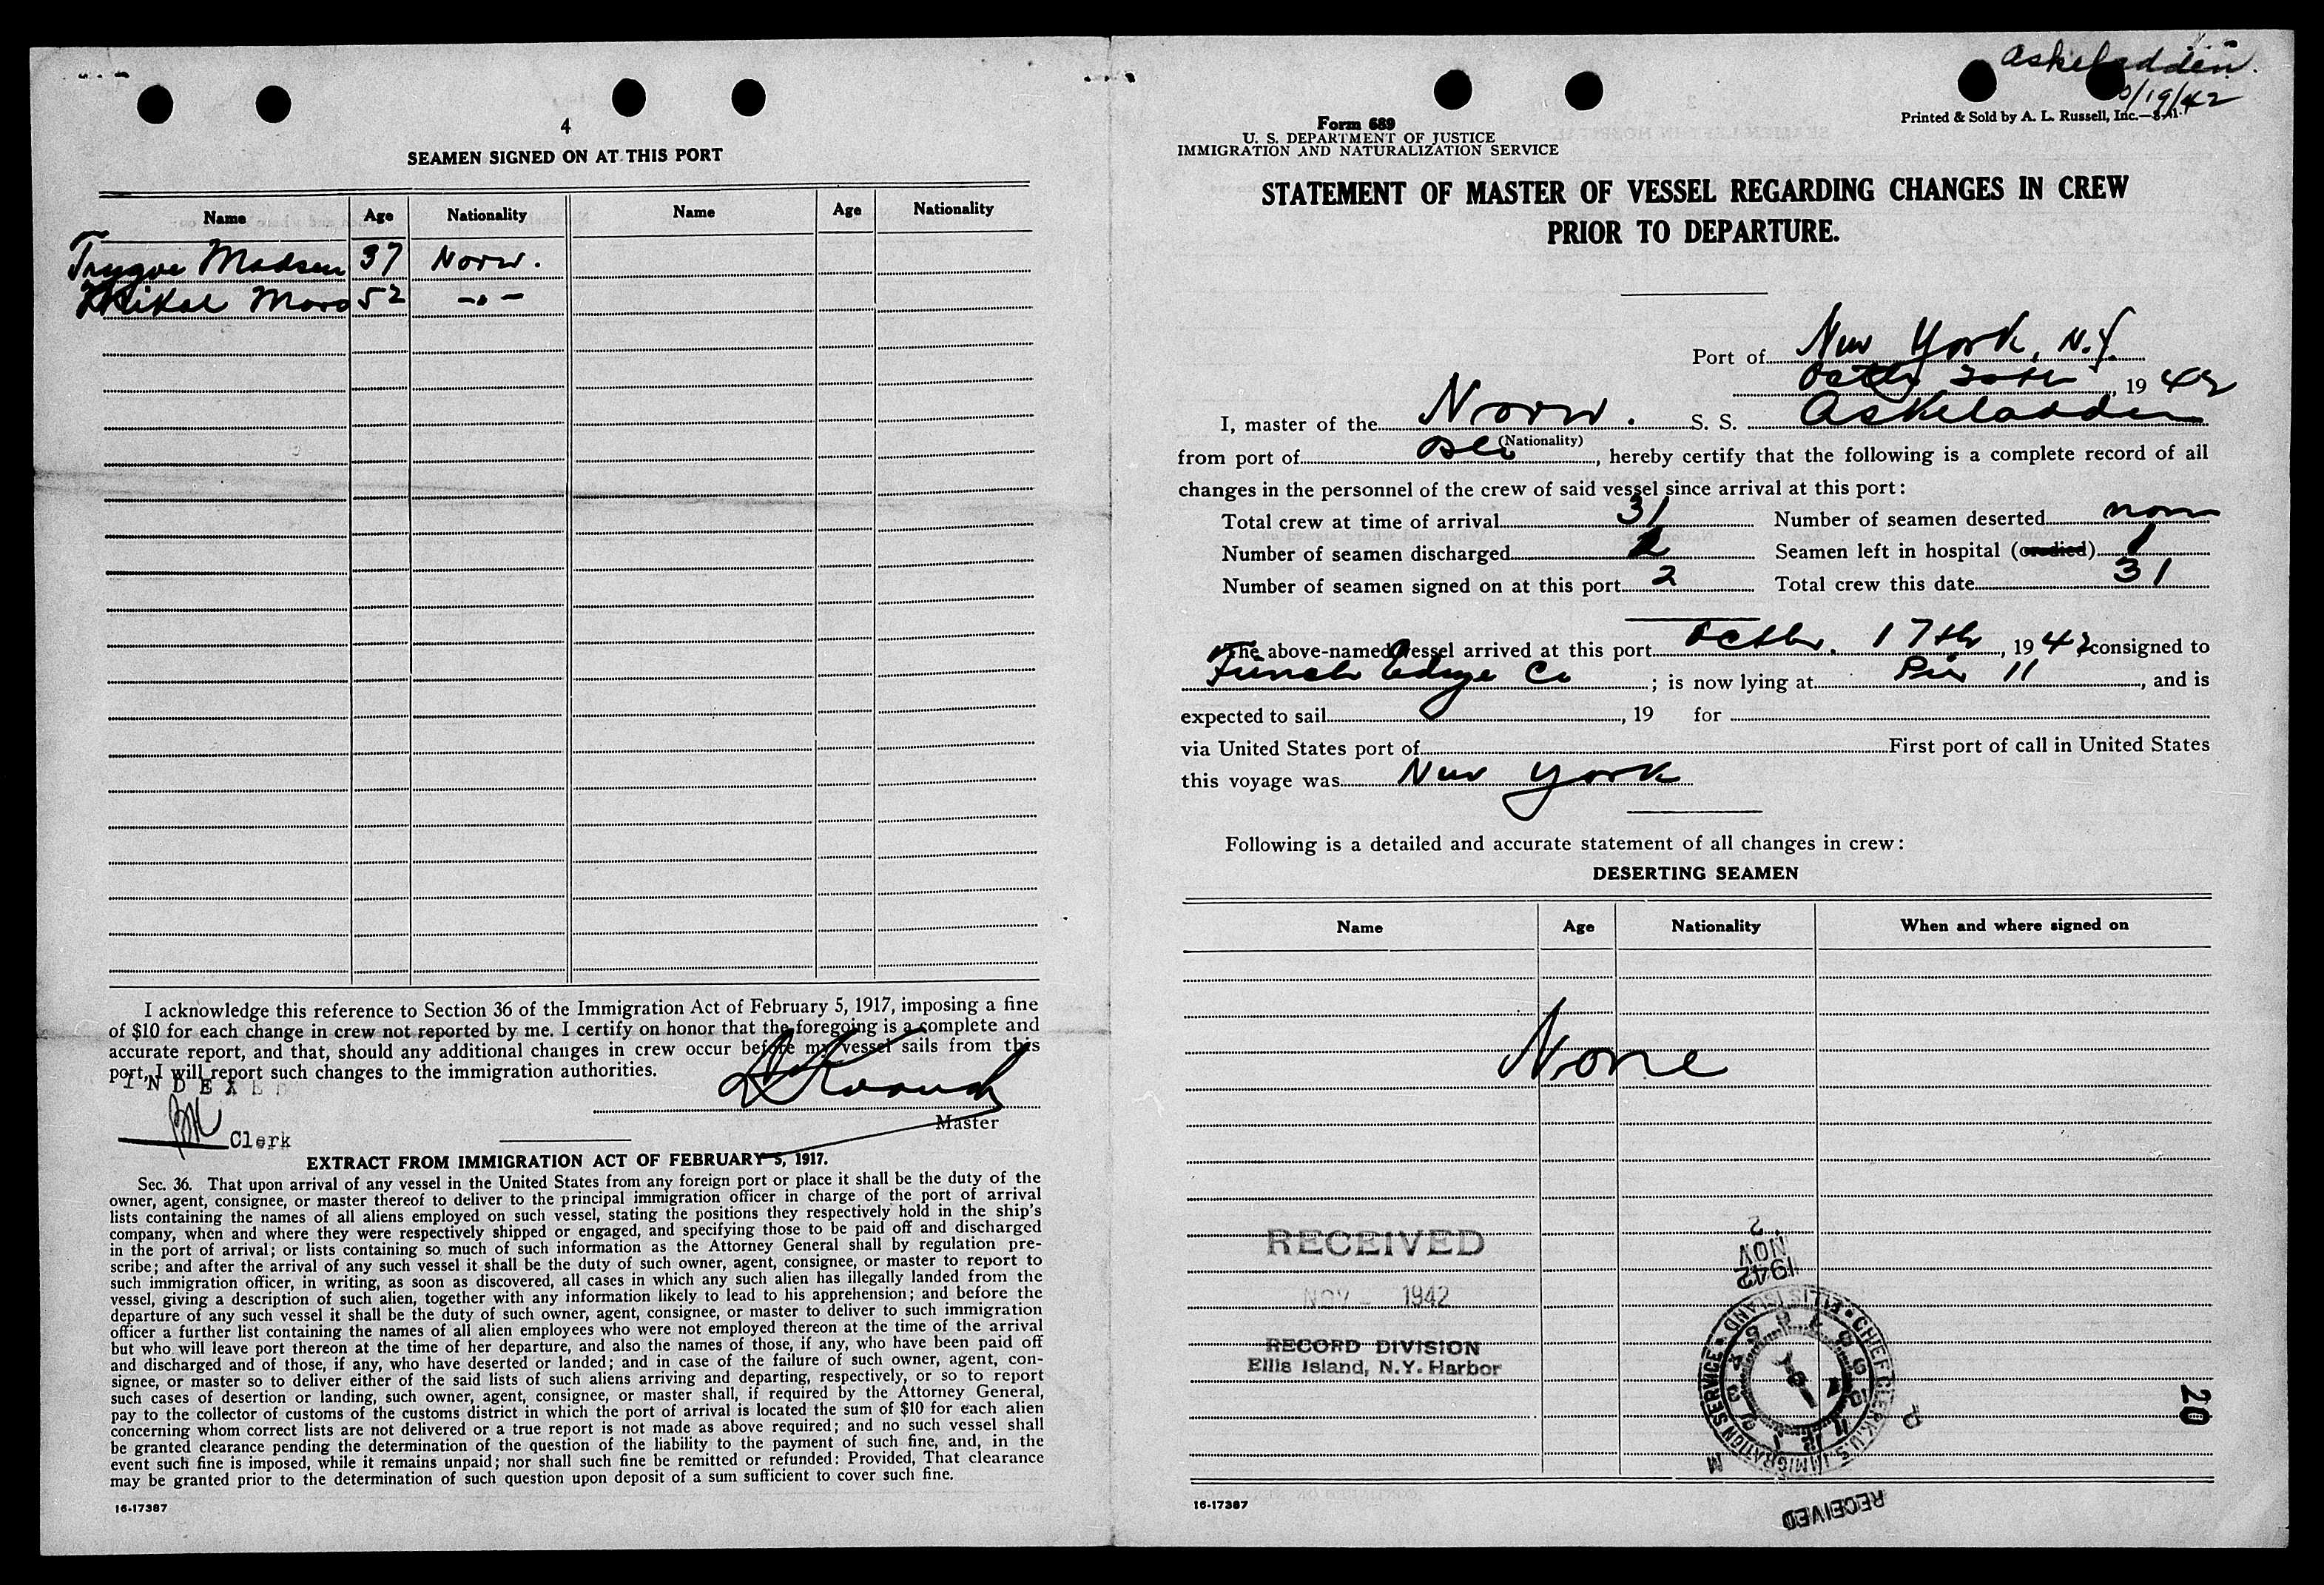 4
SEAMEN SIGNED ON AT THIS PORT
Name Age Nationality Name Age Nationality
Trygve Madsen 37 Norw.
Mikal Moro 52 -"-
I acknowledge this reference to Section 36 of the Immigration Act of February 5, 1917, imposing a fine
of $10 for each change in crew not reported by me. I certify on honor that the foregoing is a complete and
accurate report, and that, should any additional changes in crew occur before my vessel sails from this
port, I will report such changes to the immigration authorities.
INDEXED
Clerk
Master
EXTRACT FROM IMMIGRATION ACT OF FEBRUARY 5, 1917.
Sec. 36. That upon arrival of any vessel in the United States from any foreign port or place it shall be the duty of the
owner, agent, consignee, or master thereof to deliver to the principal immigration officer in charge of the port of arrival
lists containing the names of all aliens employed on such vessel, stating the positions they respectively hold in the ship's
company, when and where they were respectively shipped or engaged, and specifying those to be paid off and discharged
in the port of arrival; or lists containing so much of such information as the Attorney General shall by regulation pre-
scribe; and after the arrival of any such vessel it shall be the duty of such owner, agent, consignee, or master to report to
such immigration officer, in writing, as soon as discovered, all cases in which any such alien has illegally landed from the
vessel, giving a description of such alien, together with any information likely to lead to his apprehension; and before the
departure of any such vessel it shall be the duty of such owner, agent, consignee, or master to deliver to such immigration
officer a further list containing the names of all alien employees who were not employed thereon at the time of the arrival
but who will leave port thereon at the time of her departure, and also the names of those, if any, who have been paid off
and discharged and of those, if any, who have deserted or landed; and in case of the failure of such owner, agent, con-
signee, or master so to deliver either of the said lists of such aliens arriving and departing, respectively, or so to report
such cases of desertion or landing, such owner, agent, consignee, or master shall, if required by the Attorney General,
pay to the collector of customs of the customs district in which the port of arrival is located the sum of $10 for each alien
concerning whom correct lists are not delivered or a true report is not made as above required; and no such vessel shall
be granted clearance pending the determination of the question of the liability to the payment of such fine, and, in the
event such fine is imposed, while it remains unpaid; nor shall such fine be remitted or refunded: Provided, That clearance
may be granted prior to the determination of such question upon deposit of a sum sufficient to cover such fine.
16-17387
Askeladden.
10/19/42
Form 689
U. S. DEPARTMENT OF JUSTICE
IMMIGRATION AND NATURALIZATION SERVICE
Printed & Sold by A. L. Russell, Inc.
STATEMENT OF MASTER OF VESSEL REGARDING CHANGES IN CREW
PRIOR TO DEPARTURE.
Port of New York, N.Y.
Octbr 20th, 1942
I, master of the Norw. S. S. Askeladden
(Nationality)
from port of Oslo, hereby certify that the following is a complete record of all
changes in the personnel of the crew of said vessel since arrival at this port:
Total crew at time of arrival 31 Number of seamen deserted none
Number of seamen discharged Seamen left in hospital (or died) 1
Number of seamen signed on at this port 2 Total crew this date 31
The above-named vessel arrived at this port Octbr. 17th, 1942 consigned to
Funch Edye Co; is now lying at Pier 11, and is
expected to sail, 19 for
via United States port of First port of call in United States
this voyage was New York
Following is a detailed and accurate statement of all changes in crew:
DESERTING SEAMEN
Name Age Nationality When and where signed on
None
RECEIVED
NOV 1942
RECORD DIVISION
Ellis Island, N.Y. Harbor
1942 NOV 2
CHIEF CLERK U.S. IMMIGRATION SERVICE • ELLIS ISLAND •
RECEIVED
20
16-17387